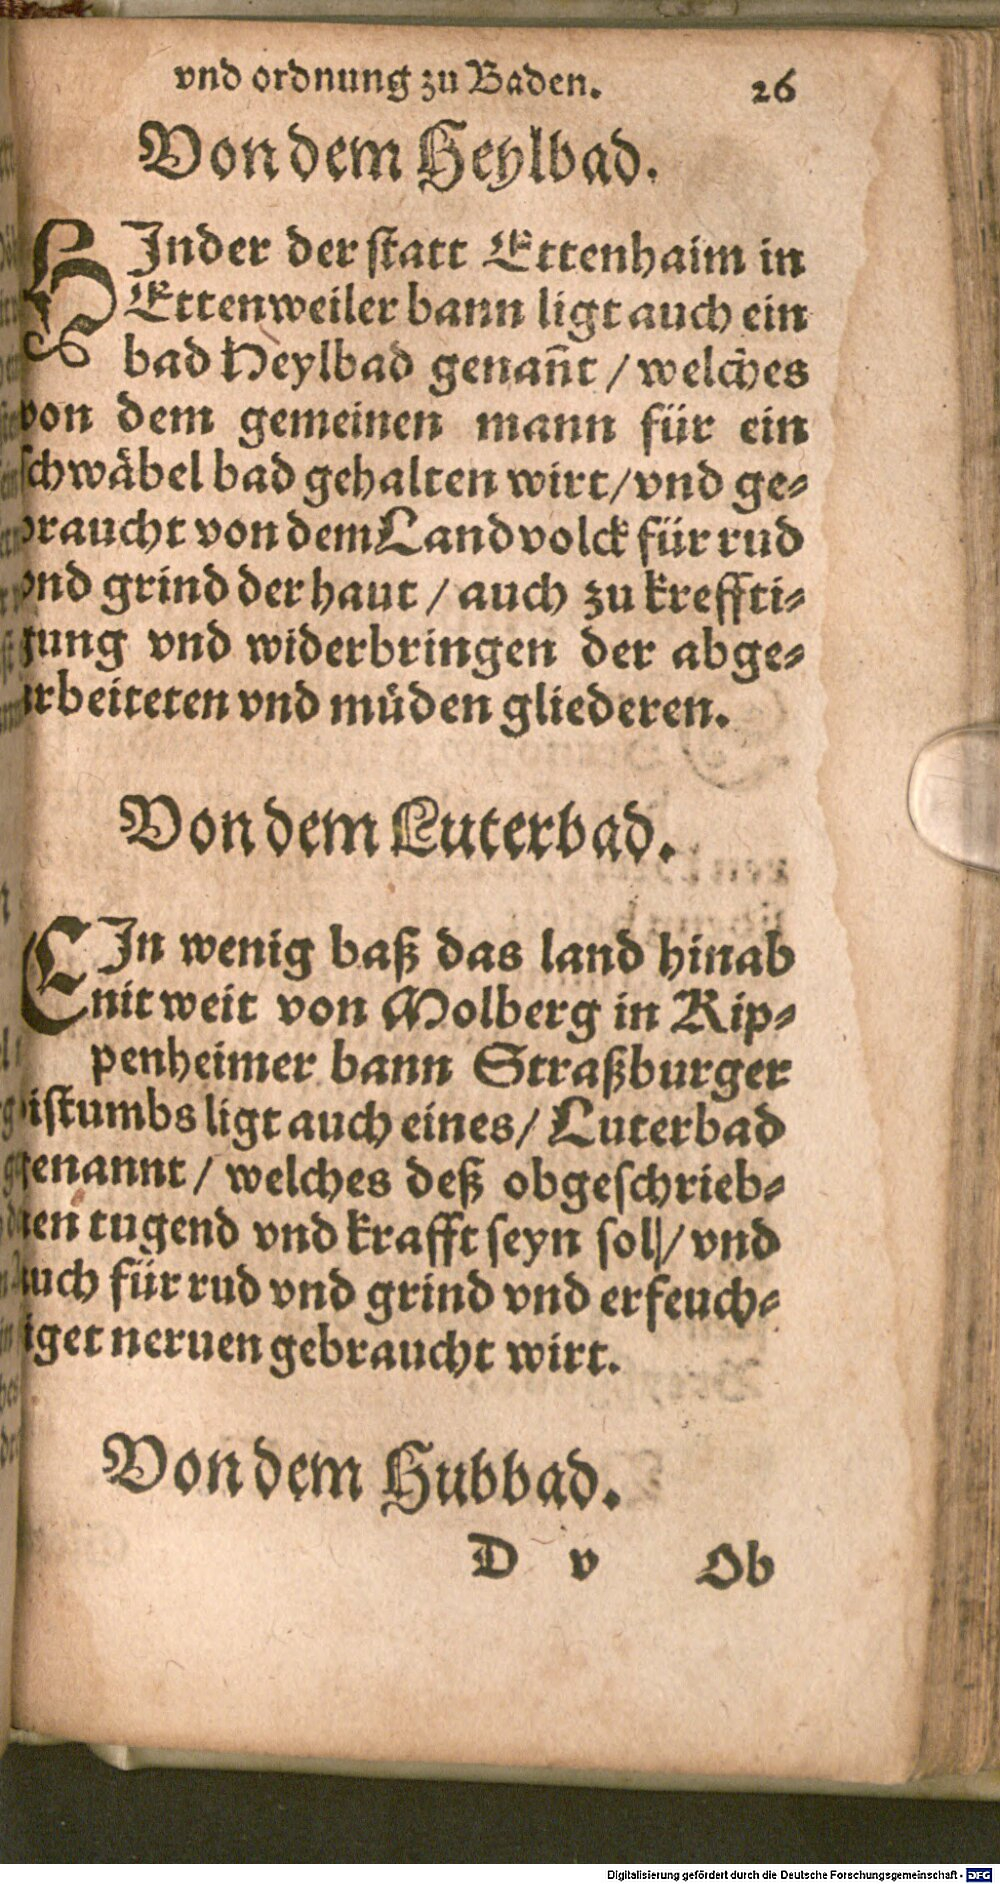 vnd ordnung zu Baden. 26
Von dem Heylbad.
HInder der statt Ettenhaim in
Ettenweiler bann ligt auch ein
bad Heylbad genañt / welches
von dem gemeinen mann für ein
schwåbel bad gehalten wirt / vnd ge-
braucht von dem Landvolck für rud
vnd grind der haut / auch zu kreffti-
gung vnd widerbringen der abge-
arbeiteten vnd müden gliederen.
Von dem Luterbad.
EIn wenig baß das land hinab
nit weit von Molberg in Kip-
penheimer bann Straßburger
Bistumbs ligt auch eines / Luterbad
genannt / welches deß obgeschrieb-
nen tugend vnd krafft seyn soll / vnd
auch für rud vnd grind vnd erfeuch-
tiget neruen gebraucht wirt.
Von dem Hubbad.
D v Ob
Digitalisierung gefördert durch die Deutsche Forschungsgemeinschaft - DFG